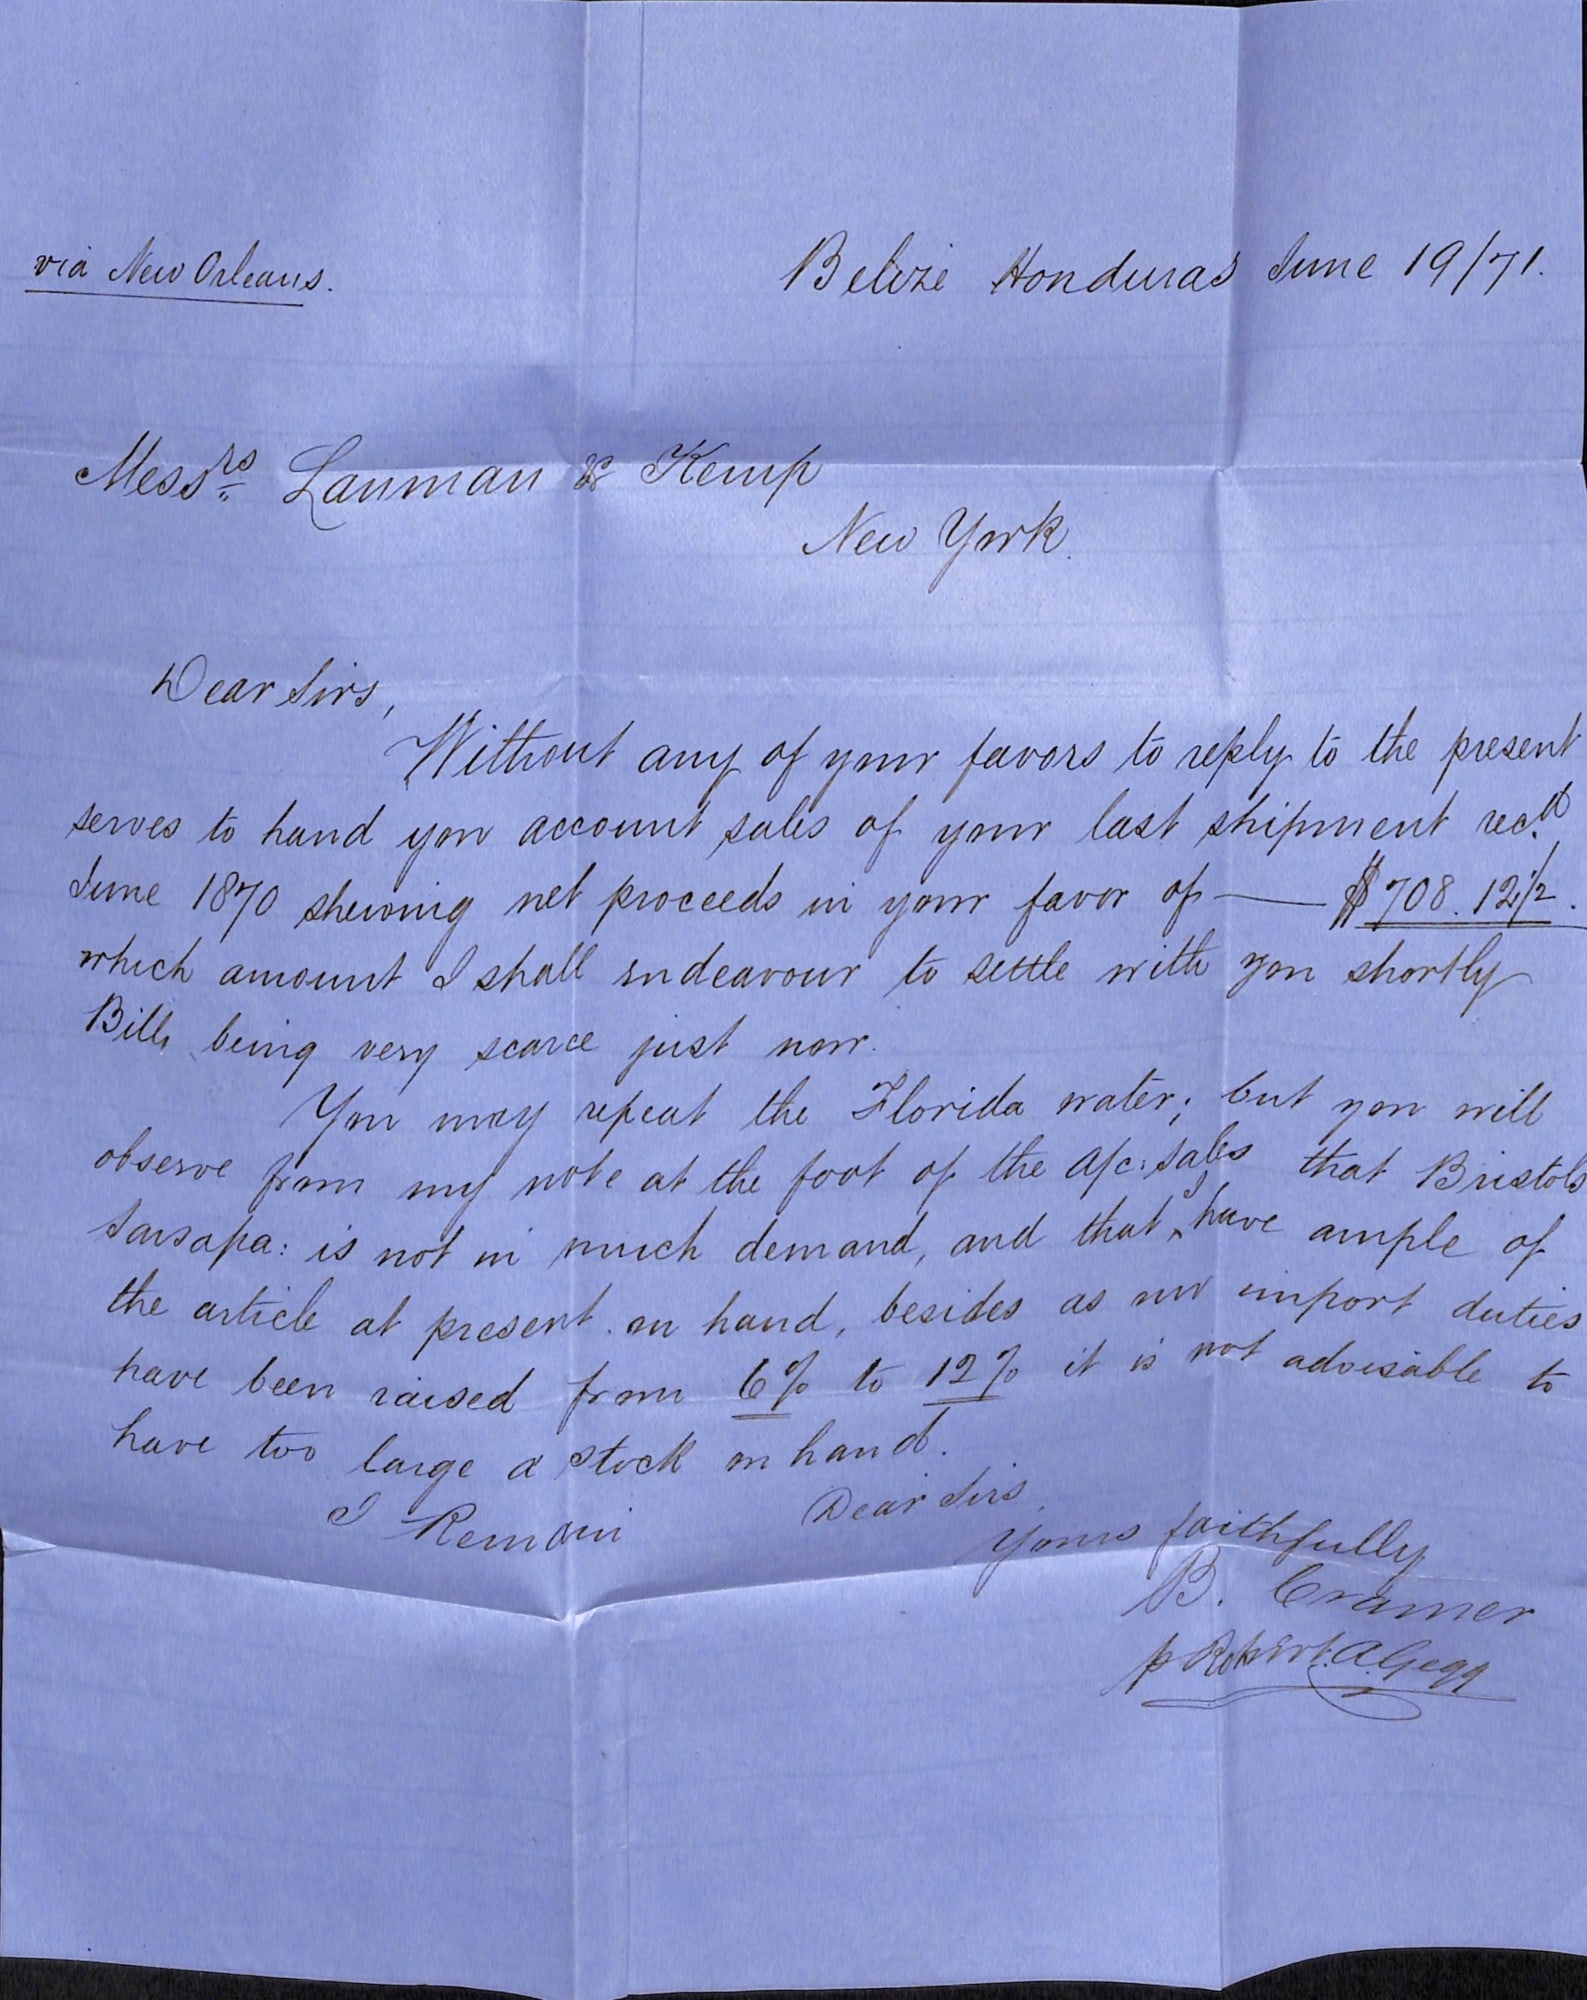 via New Orleans.
Belize Honduras June 19/71.
Messrs Lanman & Kemp
New York.
Dear Sirs,
Without any of your favors to reply to the present
serves to hand you account sales of your last shipment recd.
June 1870 shewing net proceeds in your favor of — $708.12½.
which amount I shall endeavour to settle with you shortly
Bills being very scarce just now.
You may repeat the Florida water; but you will
observe from my note at the foot of the a/c: sales that Bristols
Sarsapa: is not in much demand, and that I have ample of
the article at present on hand, besides as our import duties
have been raised from 6% to 12% it is not advisable to
have too large a stock on hand.
I Remain Dear Sirs,
Yours faithfully
B. Cramer
p Robert. A. Gegg